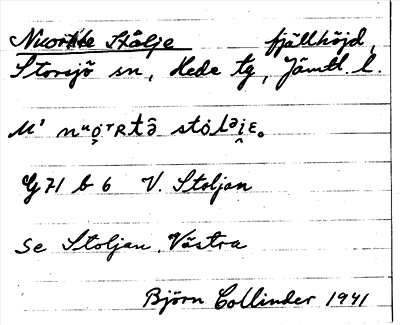 Nuortte Stålje fjällhöjd,
Storsjö sn, Hede tg, Jämtl. l.
se Stoljan, Västra
G 71 b 6 V. Stoljan
Björn Collinder 1941